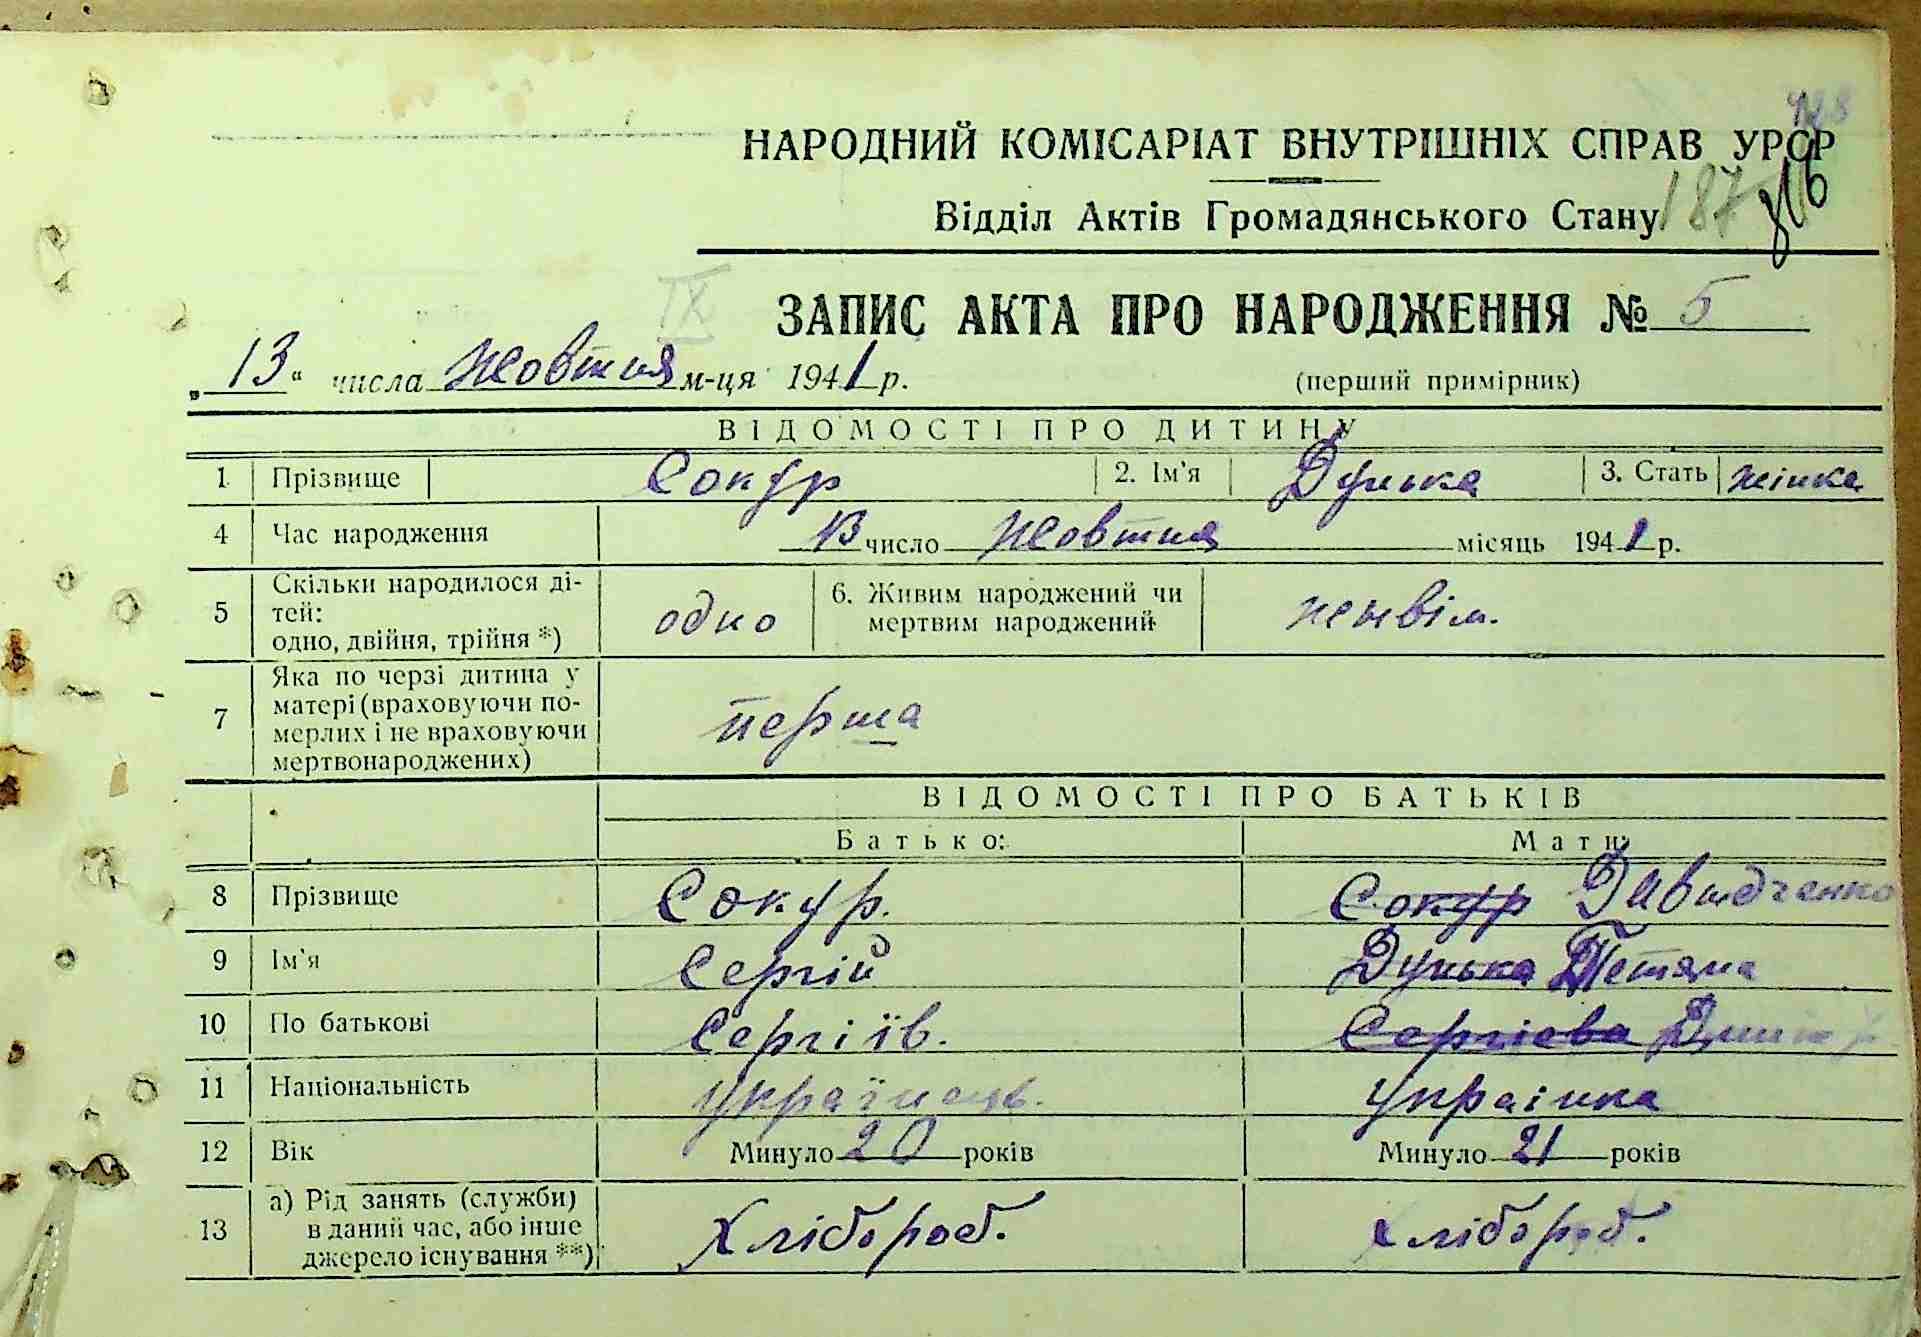 НАРОДНИЙ КОМІСАРІАТ ВНУТРІШНІХ СПРАВ УРСР
Відділ Актів Громадянського Стану 187
IX
ЗАПИС АКТА ПРО НАРОДЖЕННЯ № 5
„ 13 “ числа Жовтня м-ця 1941 р. (перший примірник)
ВІДОМОСТІ ПРО ДИТИНУ
1 Прізвище Сокур 2. Ім'я Дунька 3. Стать жінка
4 Час народження 13 число Жовтня місяць 1941 р.
5 Скільки народилося ді-
тей:
одно, двійня, трійня *) одно 6. Живим народжений чи
мертвим народжений
7 Яка по черзі дитина у
матері (враховуючи по-
мерлих і не враховуючи
мертвонароджених) перша
ВІДОМОСТІ ПРО БАТЬКІВ
Батько: Мати:
8 Прізвище Сокур. Сокур Давидченко
9 Ім'я Сергій Дунька Тетяна
10 По батькові Сергіїв. Сергієва
11 Національність Українець. Українка
12 Вік Минуло 20 років Минуло 21 років
13 а) Рід занять (служби)
в даний час, або інше
джерело існування **) Хлібороб. Хлібороб.